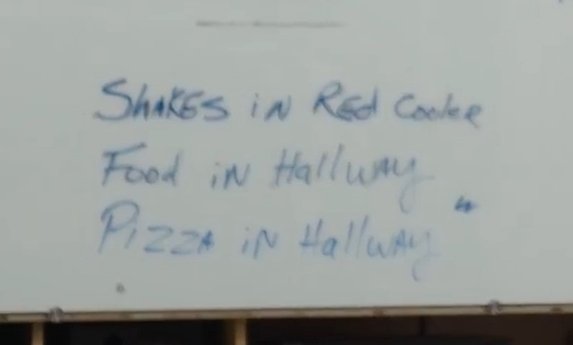 Shakes in Red Cooler
Food in Hallway
Pizza in Hallway